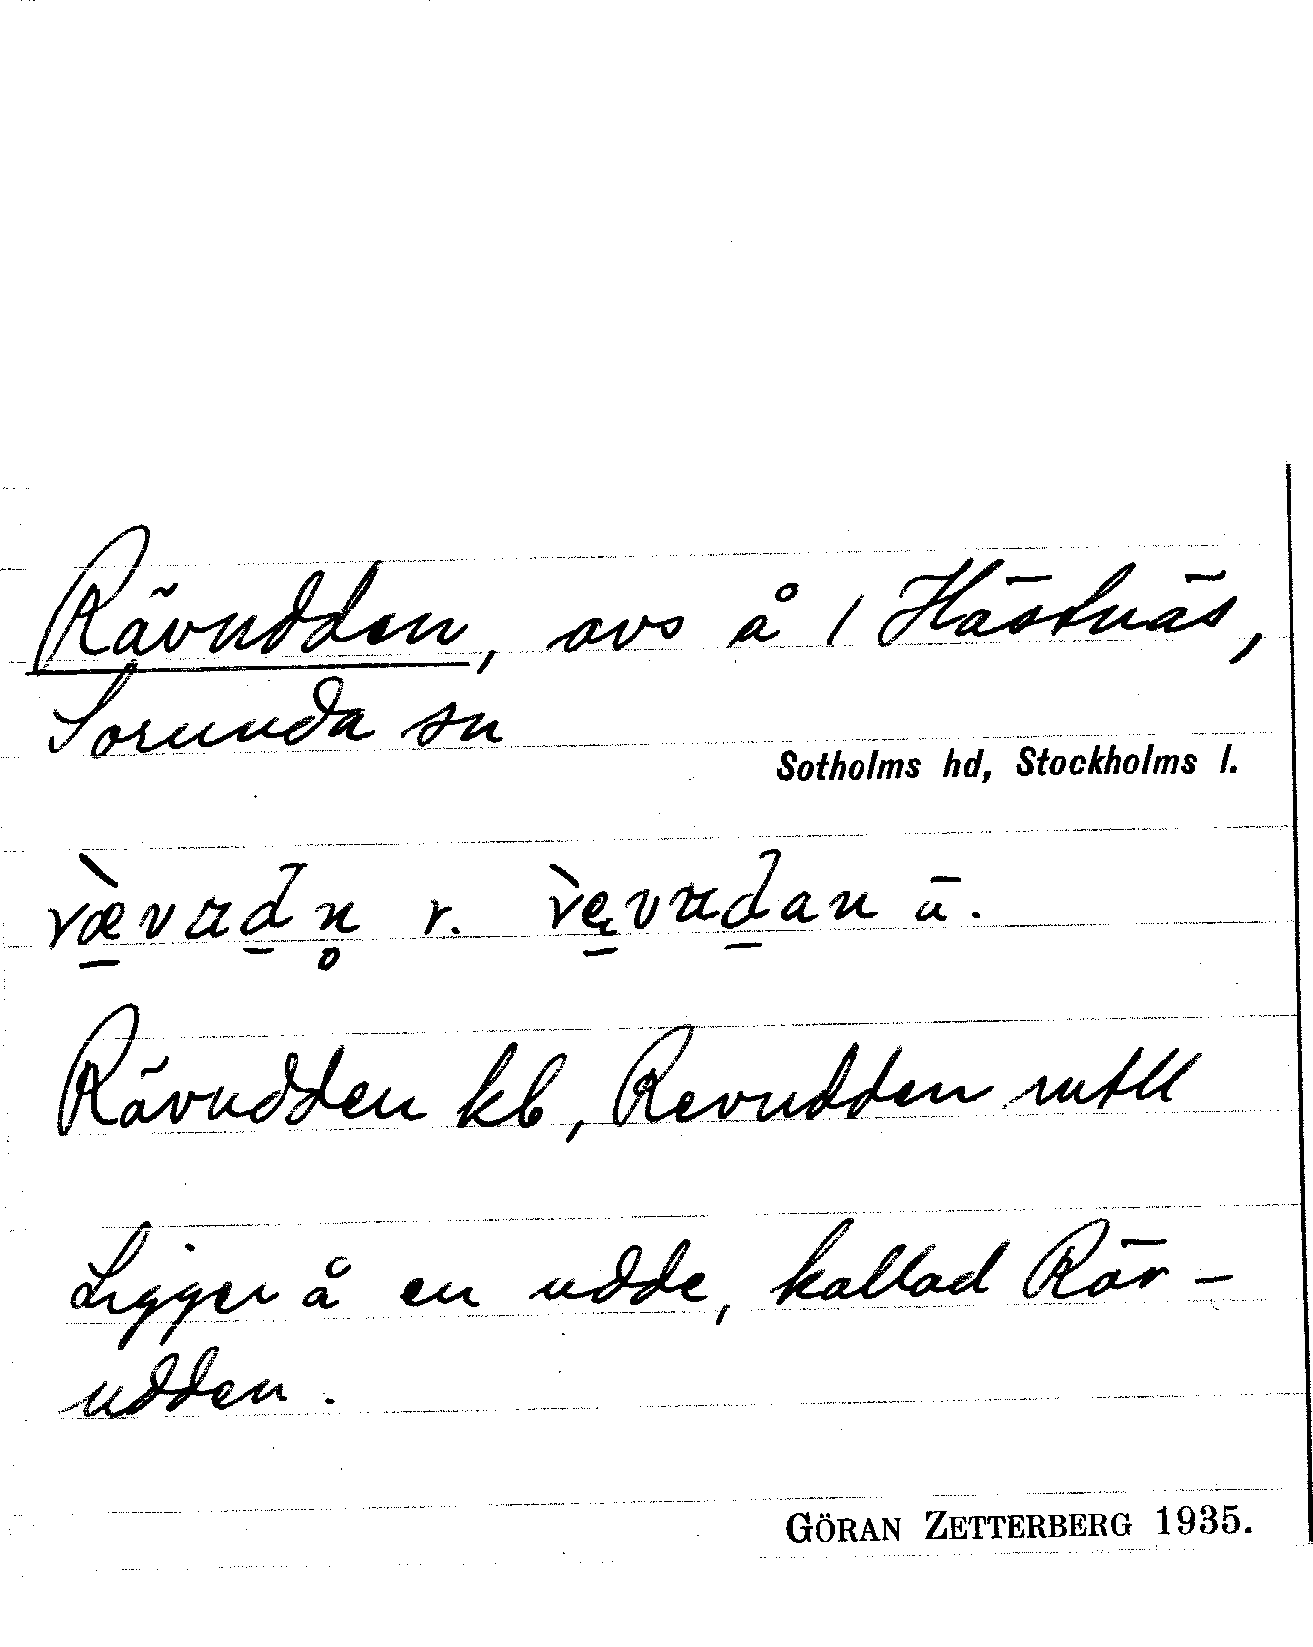 Rävudden, avs å 1 Hästnäs,
Sorunda sn
Sotholms hd, Stockholms l.
r. ä.
Rävudden kb, Revudden mtll
Ligger å en udde, kallad Räv-
udden.
GÖRAN ZETTERBERG 1935.